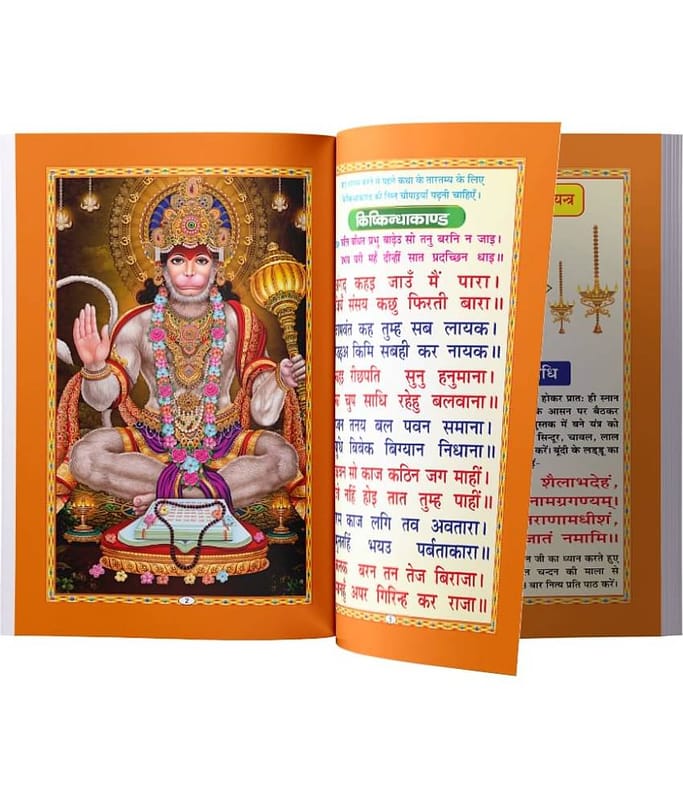 2
करने से पहले कथा के तारतम्य के लिए
की निम्न चौपाइयाँ पढ़नी चाहिएँ।
किष्किन्धाकाण्ड
बाँधत प्रभु बाढ़ेउ सो तनु बरनि न जाइ।
महँ दीन्हीं सात प्रदच्छिन धाइ॥
कहइ जाउँ मैं पारा।
संसय कछु फिरती बारा॥
कह तुम्ह सब लायक।
किमि सबही कर नायक॥
रीछपति सुनु हनुमाना।
चुप साधि रहेहु बलवाना॥
तनय बल पवन समाना।
बिबेक बिग्यान निधाना॥
सो काज कठिन जग माहीं।
नहिं होइ तात तुम्ह पाहीं॥
काज लगि तव अवतारा।
भयउ पर्बताकारा॥
बरन तन तेज बिराजा।
अपर गिरिन्ह कर राजा॥
1
यन्त्र
धि
होकर प्रातः ही स्नान
के आसन पर बैठकर
में बने यंत्र को
सिन्दूर, चावल, लाल
करें। बूंदी के लड्डू का
शैलाभदेहं,
नामग्रगण्यम्।
राणामधीशं,
जातं नमामि॥
जी का ध्यान करते हुए
चन्दन की माला से
बार नित्य प्रति पाठ करें।